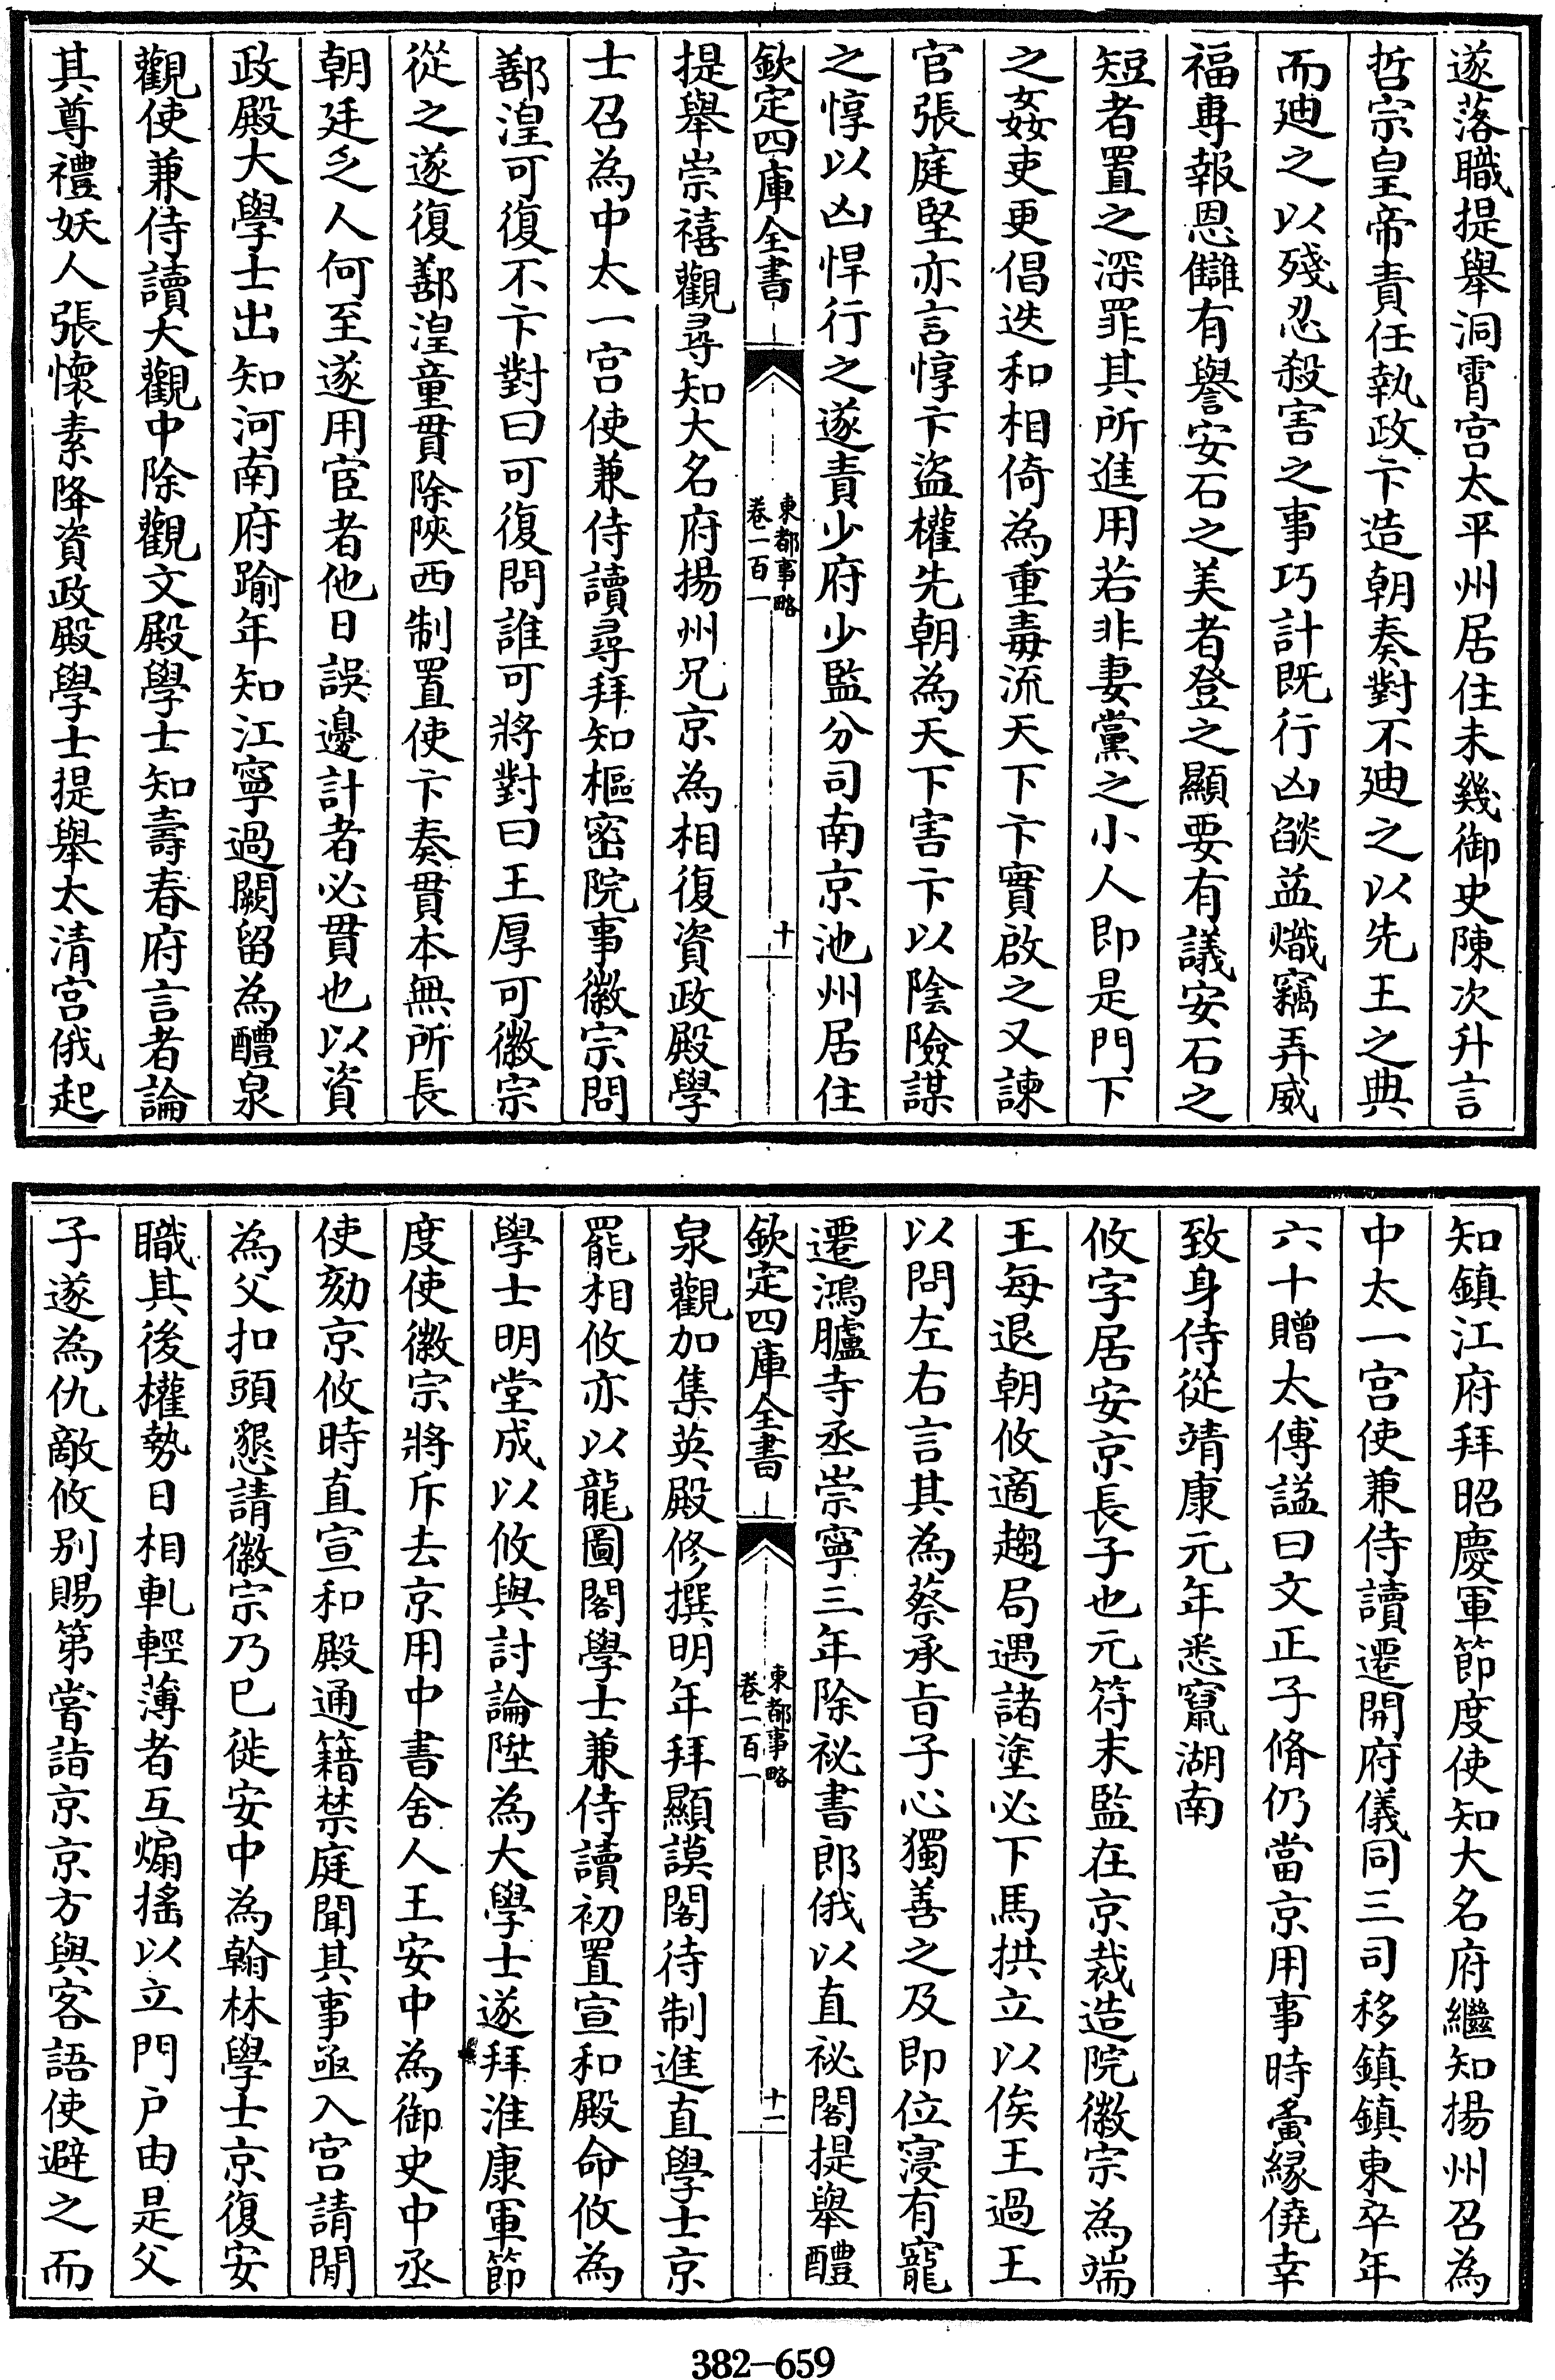 遂落職提舉洞霄宫太平州居住未幾御史陳次升言
哲宗皇帝責任執政卞造朝奏對不廸之以先王之典
而廸之以殘忍殺害之事巧計既行凶燄益熾竊弄威
福專報恩讎有譽安石之美者登之顯要有議安石之
短者置之深罪其所進用若非妻黨之小人即是門下
之姦吏更倡迭和相倚為重毒流天下卞實啟之又諫
官張庭堅亦言惇卞盜權先朝為天下害卞以陰險謀
之惇以凶悍行之遂責少府少監分司南京池州居住
欽定四庫全書
東都事略
卷一百一
十
提舉崇禧觀尋知大名府揚州兄京為相復資政殿學
士召為中太一宫使兼侍讀尋拜知樞密院事徽宗問
鄯湟可復不卞對曰可復問誰可將對曰王厚可徽宗
從之遂復鄯湟童貫除陜西制置使卞奏貫本無所長
朝廷乏人何至遂用宦者他日誤邊計者必貫也以資
政殿大學士出知河南府踰年知江寧過闕留為醴泉
觀使兼侍讀大觀中除觀文殿學士知壽春府言者論
其尊禮妖人張懷素降資政殿學士提舉太清宫俄起
知鎮江府拜昭慶軍節度使知大名府繼知揚州召為
中太一宫使兼侍讀遷開府儀同三司移鎮鎮東卒年
六十贈太傅謚曰文正子脩仍當京用事時夤緣僥幸
致身侍從靖康元年悉竄湖南
攸字居安京長子也元符末監在京裁造院徽宗為端
王每退朝攸適趨局遇諸塗必下馬拱立以俟王過王
以問左右言其為蔡承旨子心獨善之及即位寖有寵
遷鴻臚寺丞崇寧三年除祕書郎俄以直祕閣提舉醴
欽定四庫全書
東都事略
卷一百一
十一
泉觀加集英殿修撰明年拜顯謨閣待制進直學士京
罷相攸亦以龍圖閣學士兼侍讀初置宣和殿命攸為
學士明堂成以攸與討論陞為大學士遂拜淮康軍節
度使徽宗將斥去京用中書舍人王安中為御史中丞
使劾京攸時直宣和殿通籍禁庭聞其事亟入宫請閒
為父扣頭懇請徽宗乃已徙安中為翰林學士京復安
職其後權勢日相軋輕薄者互煽搖以立門户由是父
子遂為仇敵攸别賜第嘗詣京京方與客語使避之而
382-659